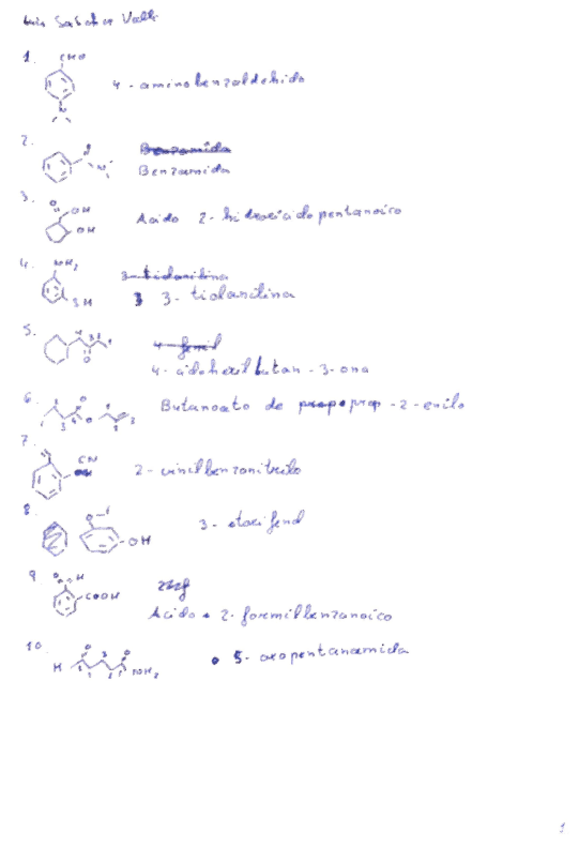 Luis Sabater Valls
1. CHO 4-aminobenzaldehido
N
2. O Benzamida
N Benzamida
3. O OH OH Acido 2-hidroxiciclopentanoico
4. NH2 3-tiolanilina
SH 3-tiolanilina
5. 4-fenil
O 4-ciclohexilbutan-3-ona
6. O O Butanoato de prop-2-enilo
7. CN 2-vinilbenzonitrilo
8. O OH 3-etoxifenol
9 O H COOH
Acido 2-formilbenzanoico
10. H O O NH2 5-oxopentanamida
1